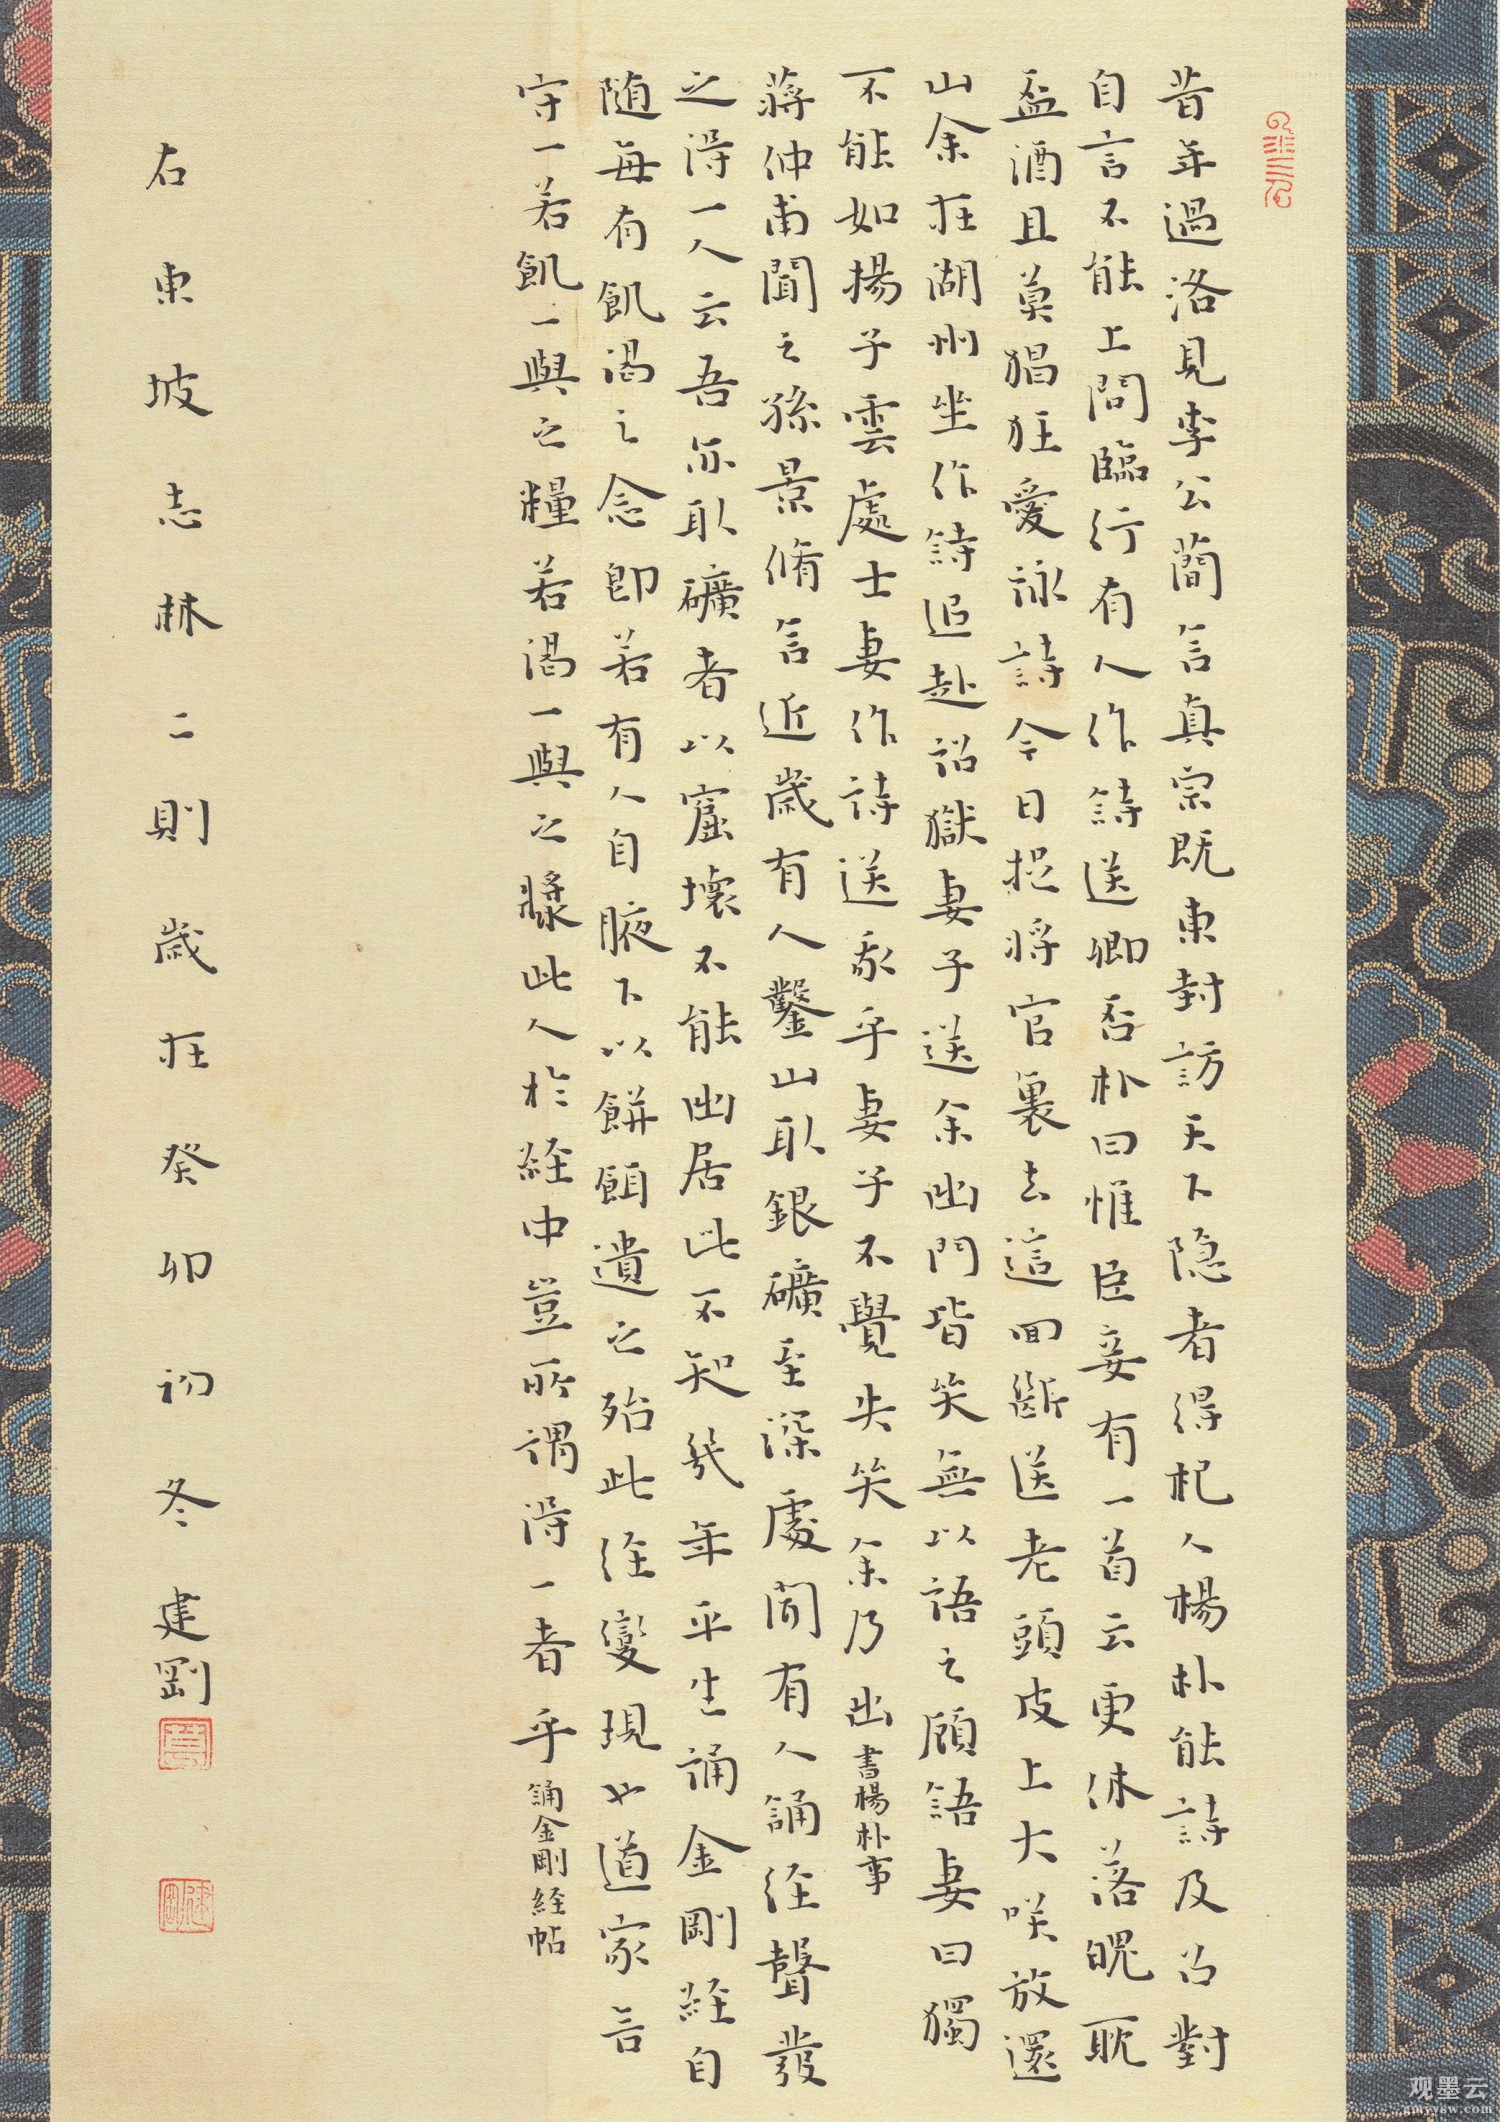 昔年過洛見李公蕳言真宗既東封訪天下隐者得杞人楊朴能詩及召對
自言不能上問臨行有人作詩送卿否朴曰惟臣妾有一首云更休落魄耽
盃酒且莫猖狂愛詠詩今日捉將官裏去這回斷送老頭皮上大咲放還
山余在湖州坐作詩追赴詔獄妻子送余出門皆笑無以語之顧語妻曰獨
不能如揚子雲處士妻作詩送我乎妻子不覺失笑余乃出 書楊朴事
蔣仲甫聞之孫景脩言近歲有人鑿山取銀礦至深處聞有人誦经聲發
之得一人云吾亦取礦者以窟壞不能出居此不知幾年平生誦金剛経自
随每有飢渴之念即若有人自腋下以餅餌遺之殆此经變現也道家言
守一若飢一與之糧若渴一與之漿此人於経中豈所謂得一者乎 誦金剛経帖
右東坡志林二則歲在癸卯初冬建剛
观墨云
gmyysw.com